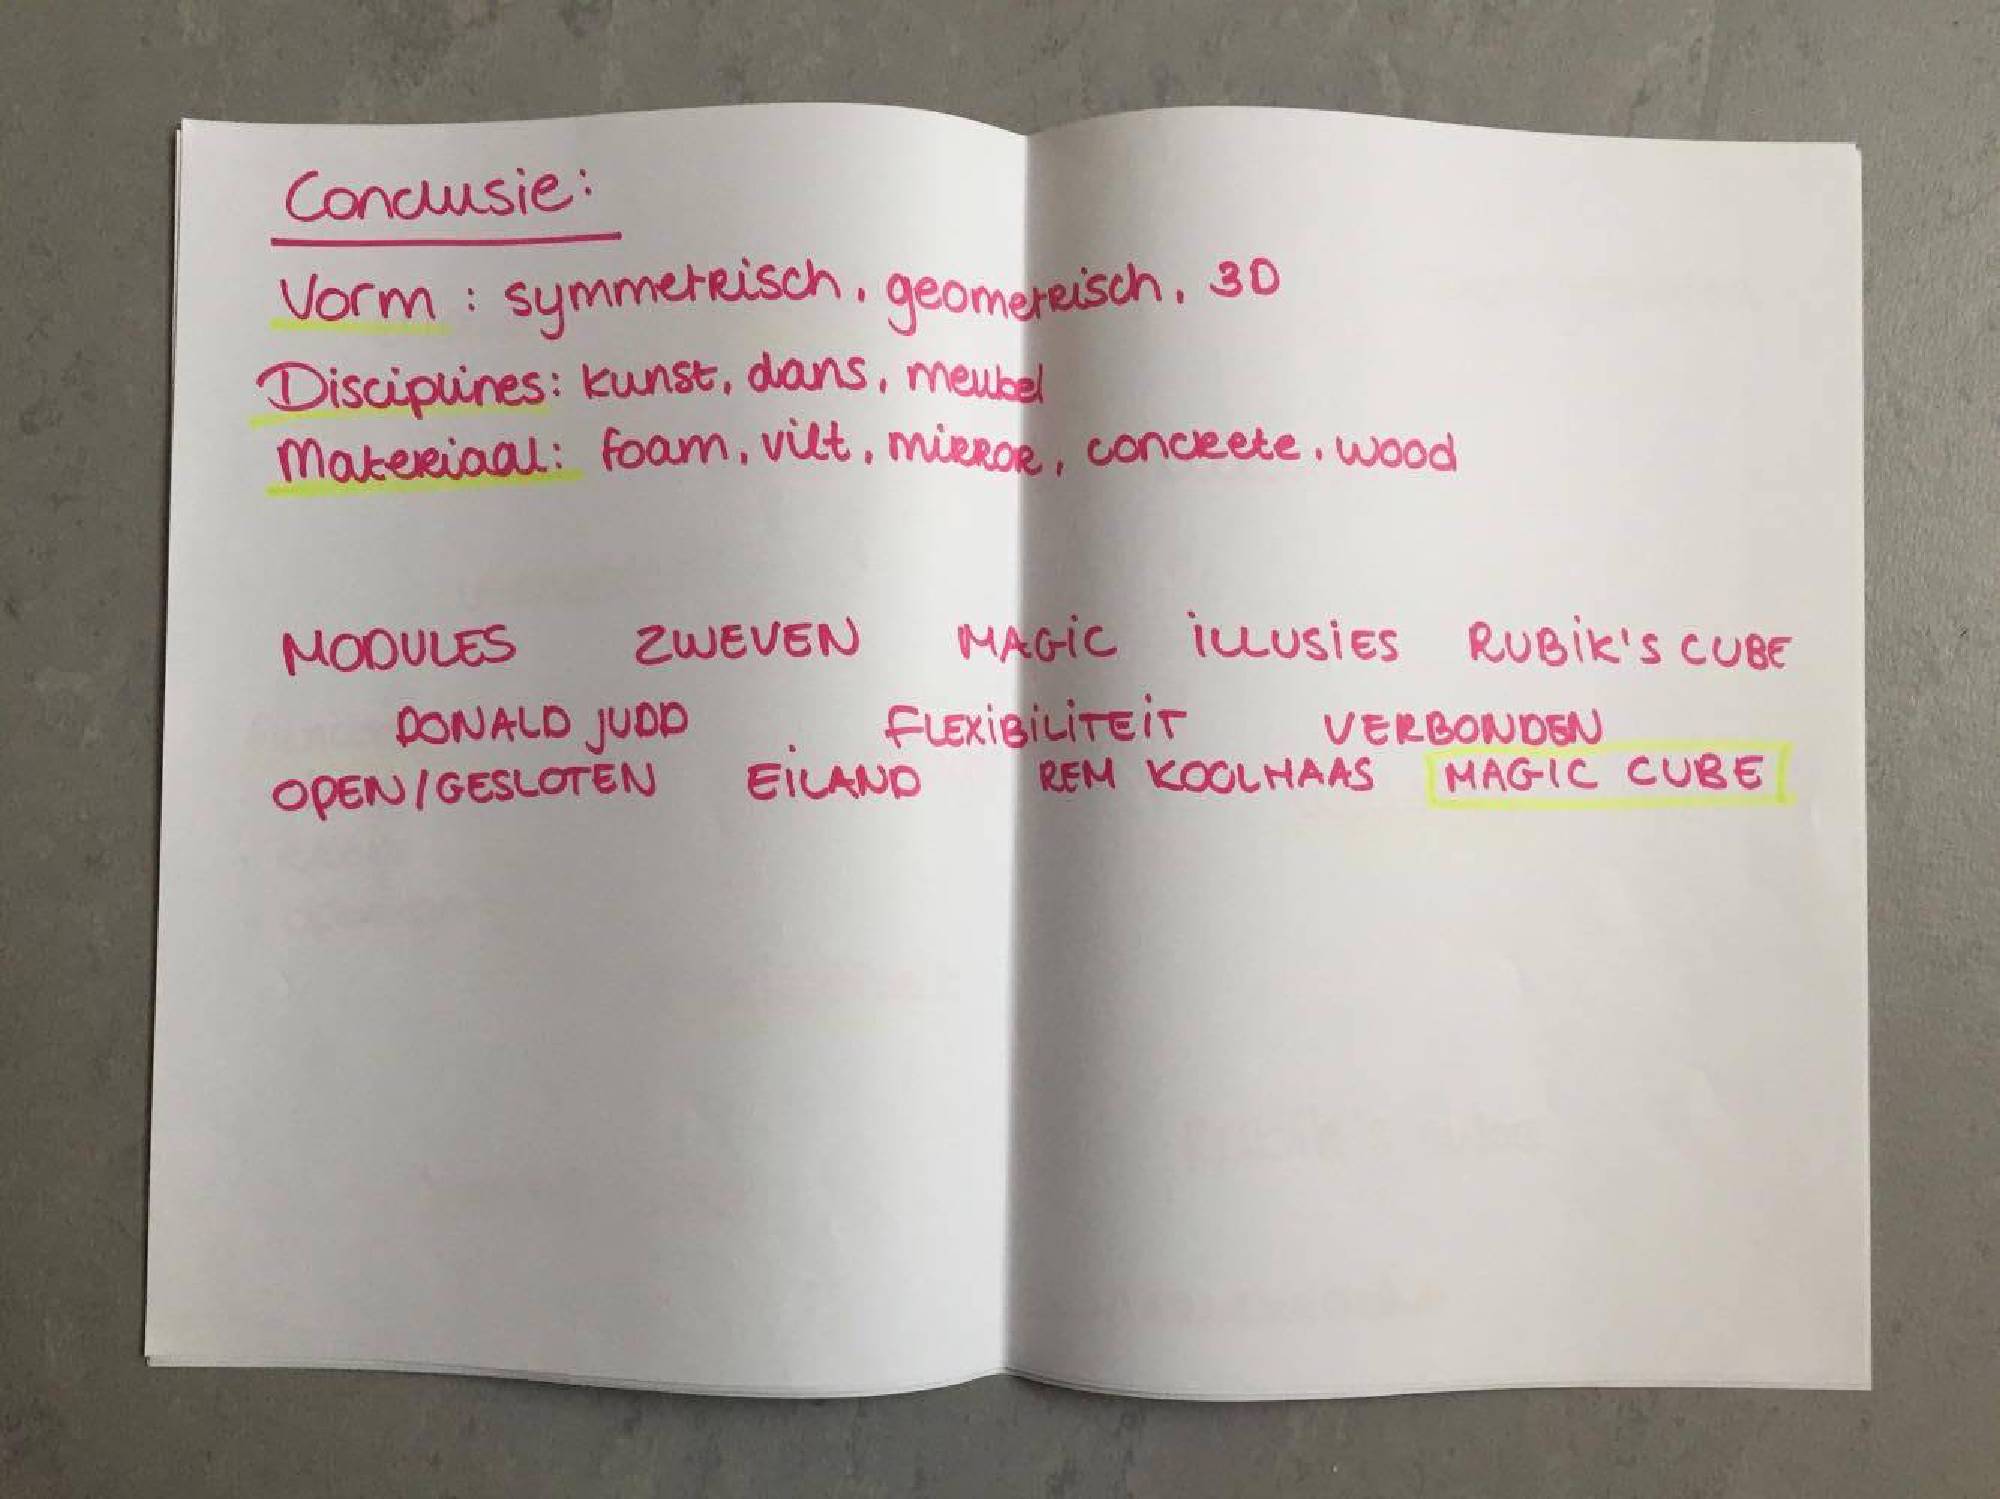 Conclusie:
Vorm : symmetrisch, geometrisch, 3D
Disciplines: kunst, dans, meubel
Materiaal: foam, vilt, mirror, concrete, wood
MODULES ZWEVEN MAGiC iLLUSiES RUBiK'S CUBE
DONALD JUDD FLEXiBiLiTEiT VERBONDEN
OPEN/GESLOTEN EiLAND REM KOOLHAAS MAGIC CUBE